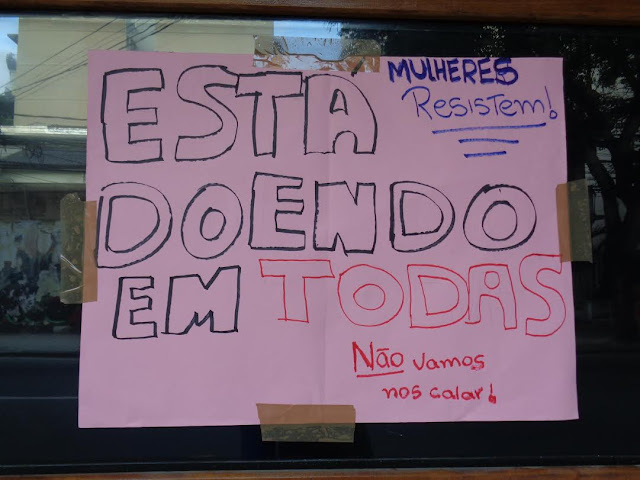 ESTÁ
MULHERES
Resistem!
DOENDO
EM TODAS
Não vamos
nos calar!